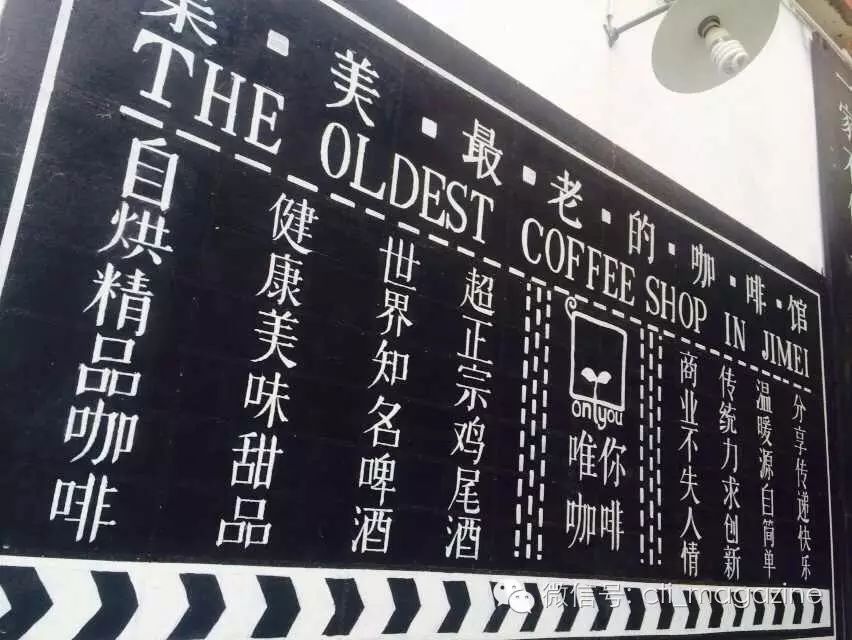 集·美·最·老·的·咖·啡·馆
THE OLDEST COFFEE SHOP IN JIMEI
自烘精品咖啡
健康美味甜品
世界知名啤酒
超正宗鸡尾酒
only you
唯你
咖啡
商业不失人情
传统力求创新
温暖源自简单
分享传递快乐
微信号: ali_magazine